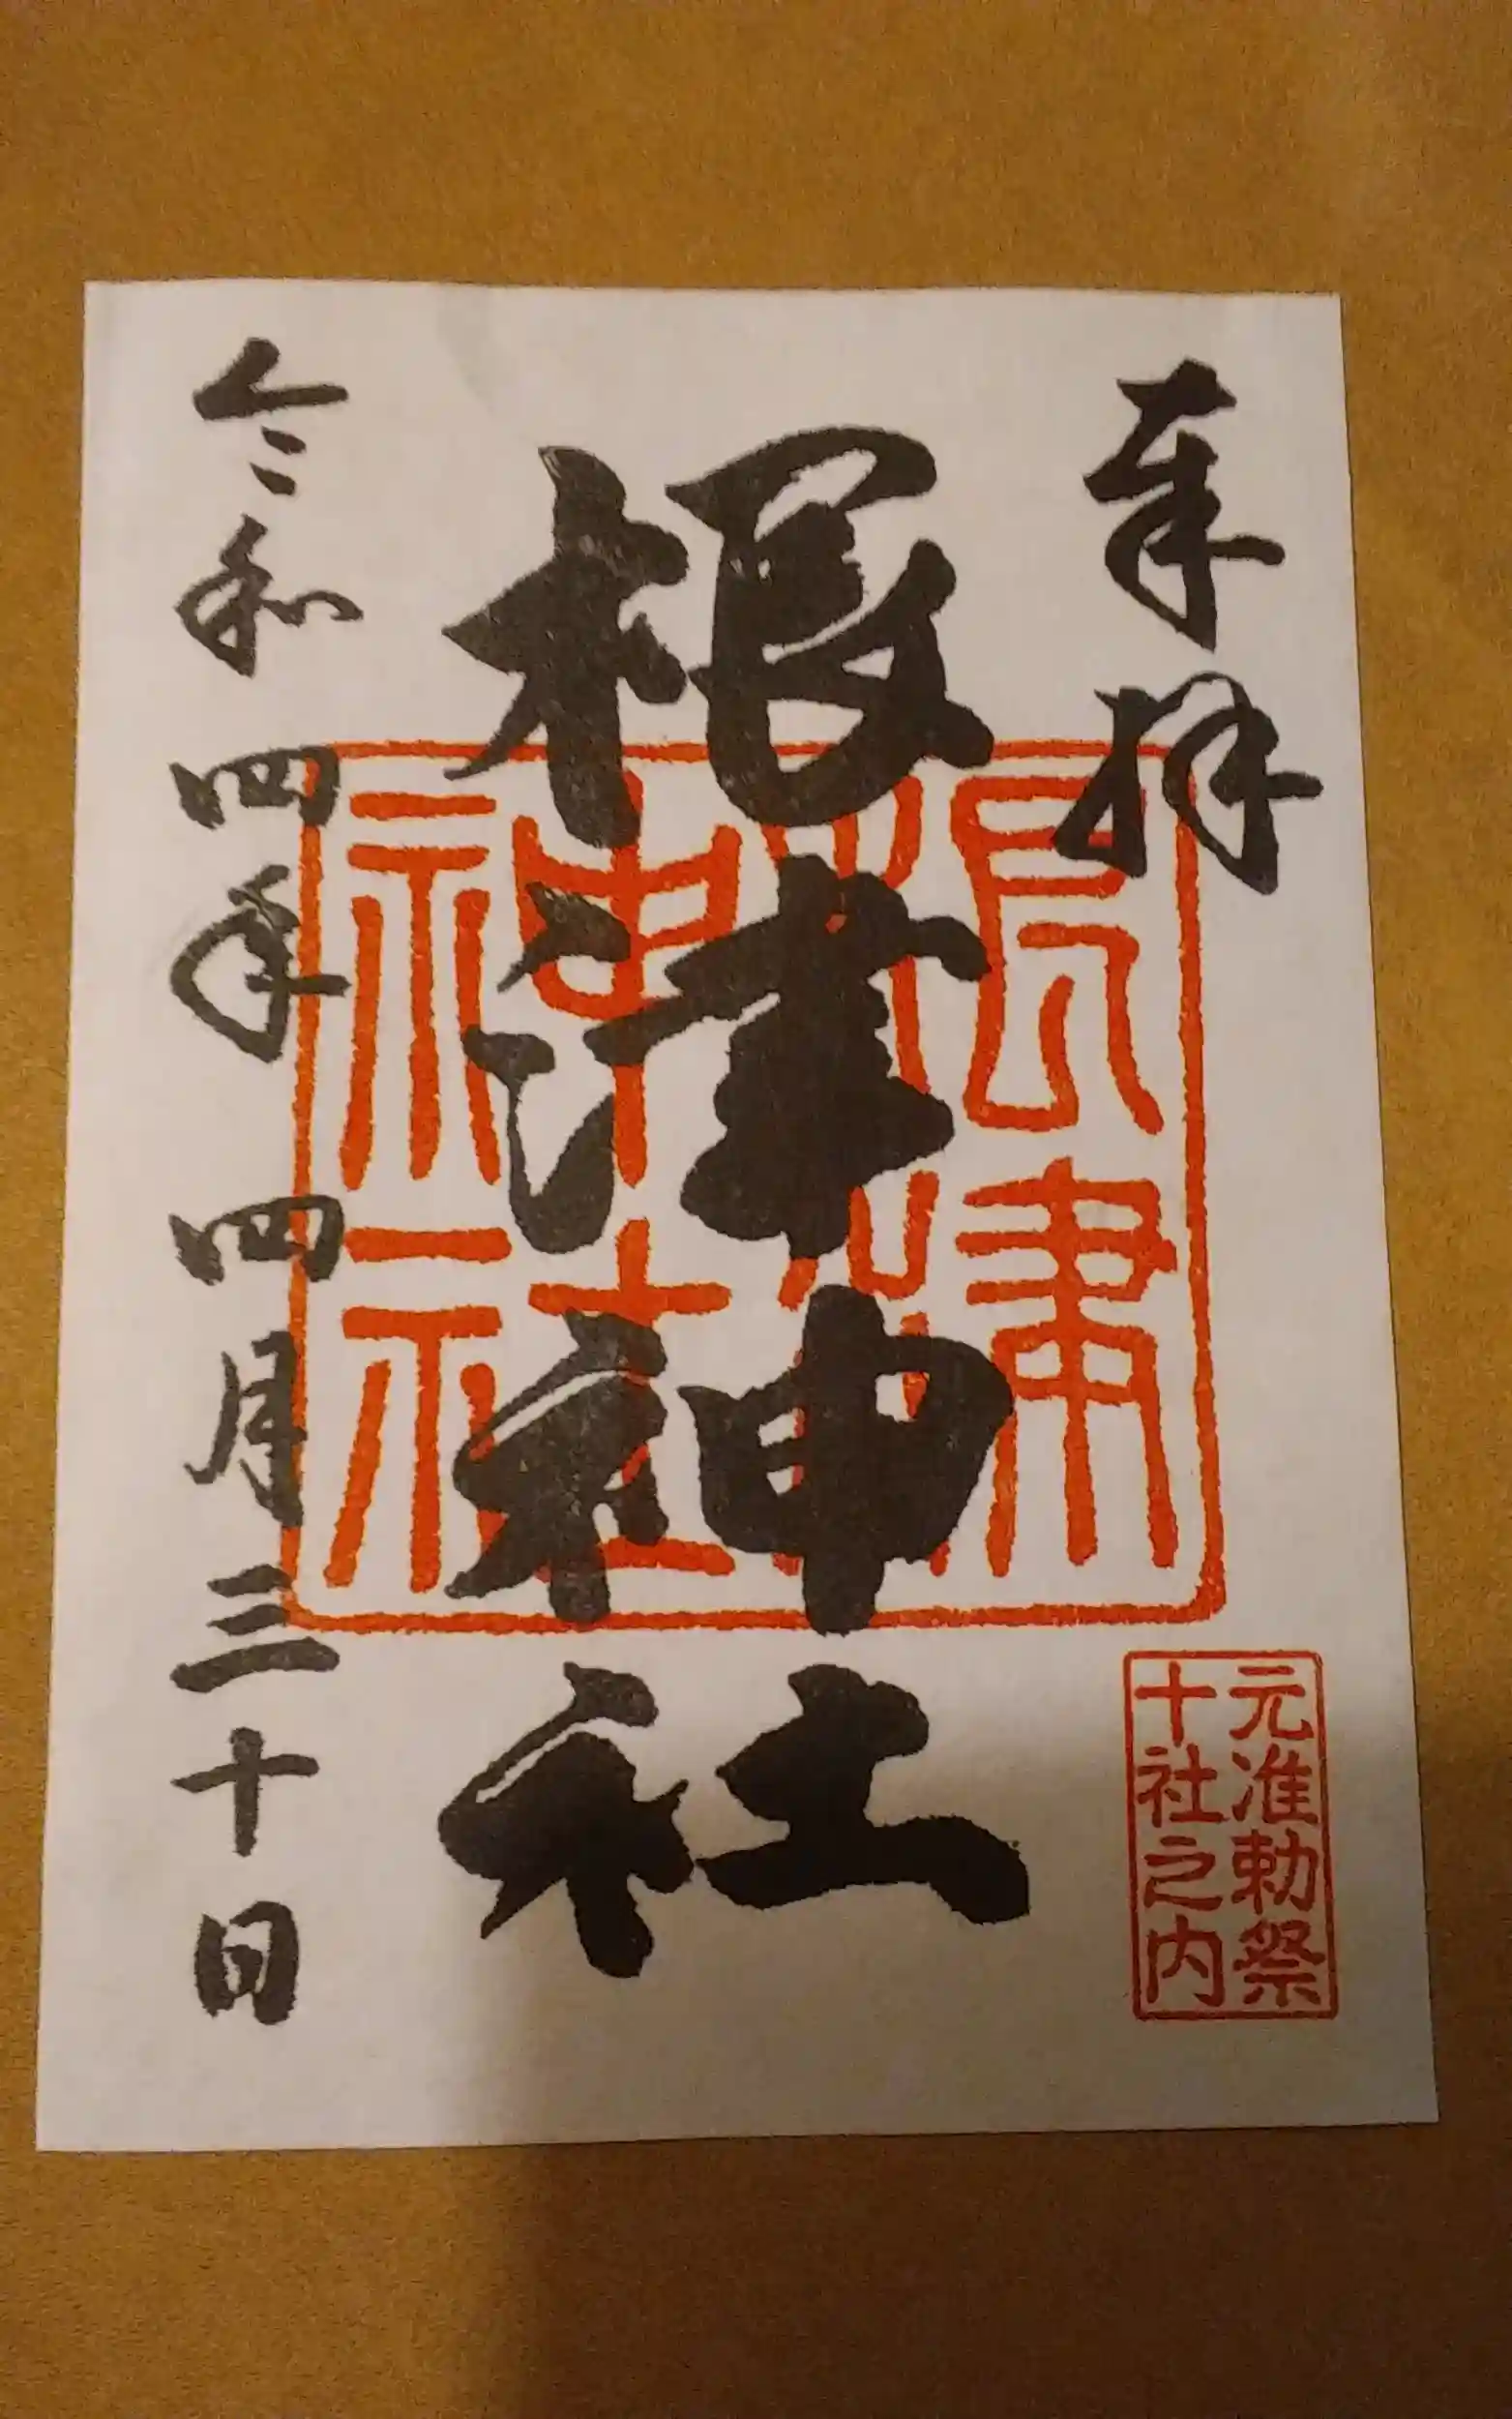 奉拝
元准勅祭
十社之内
根津神社
根津
神社
令和四年四月三十日